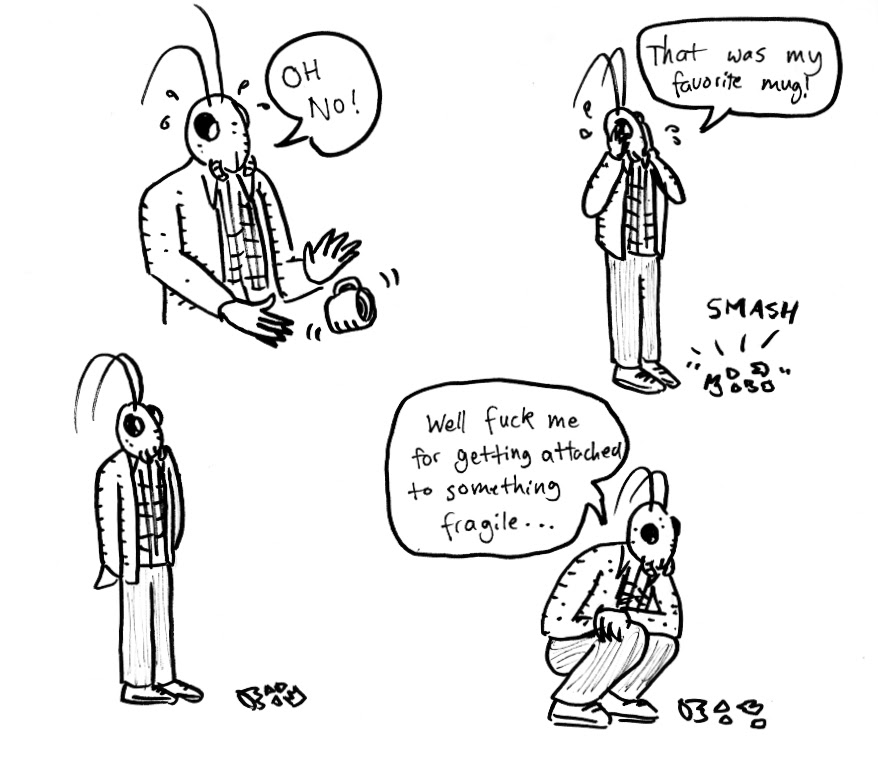 OH
NO!
That was my
favorite mug!
SMASH
Well fuck me
for getting attached
to something
fragile...